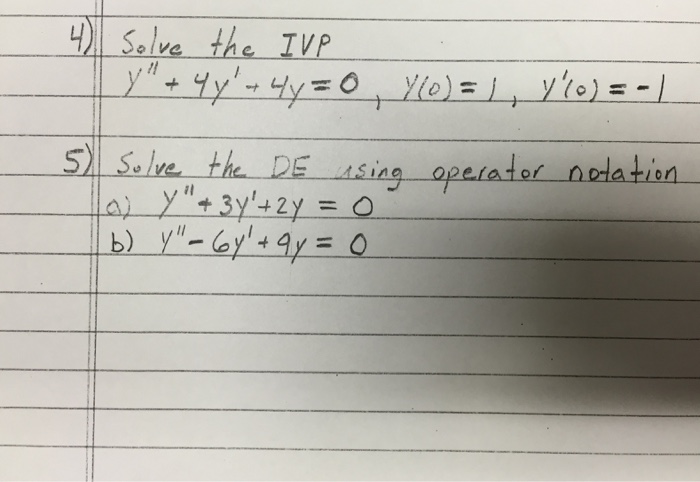 4) Solve the IVP
y" + 4y' + 4y = 0, y(0) = 1, y'(0) = -1
5) Solve the DE using operator notation
a) y" + 3y' + 2y = 0
b) y" - 6y' + 9y = 0